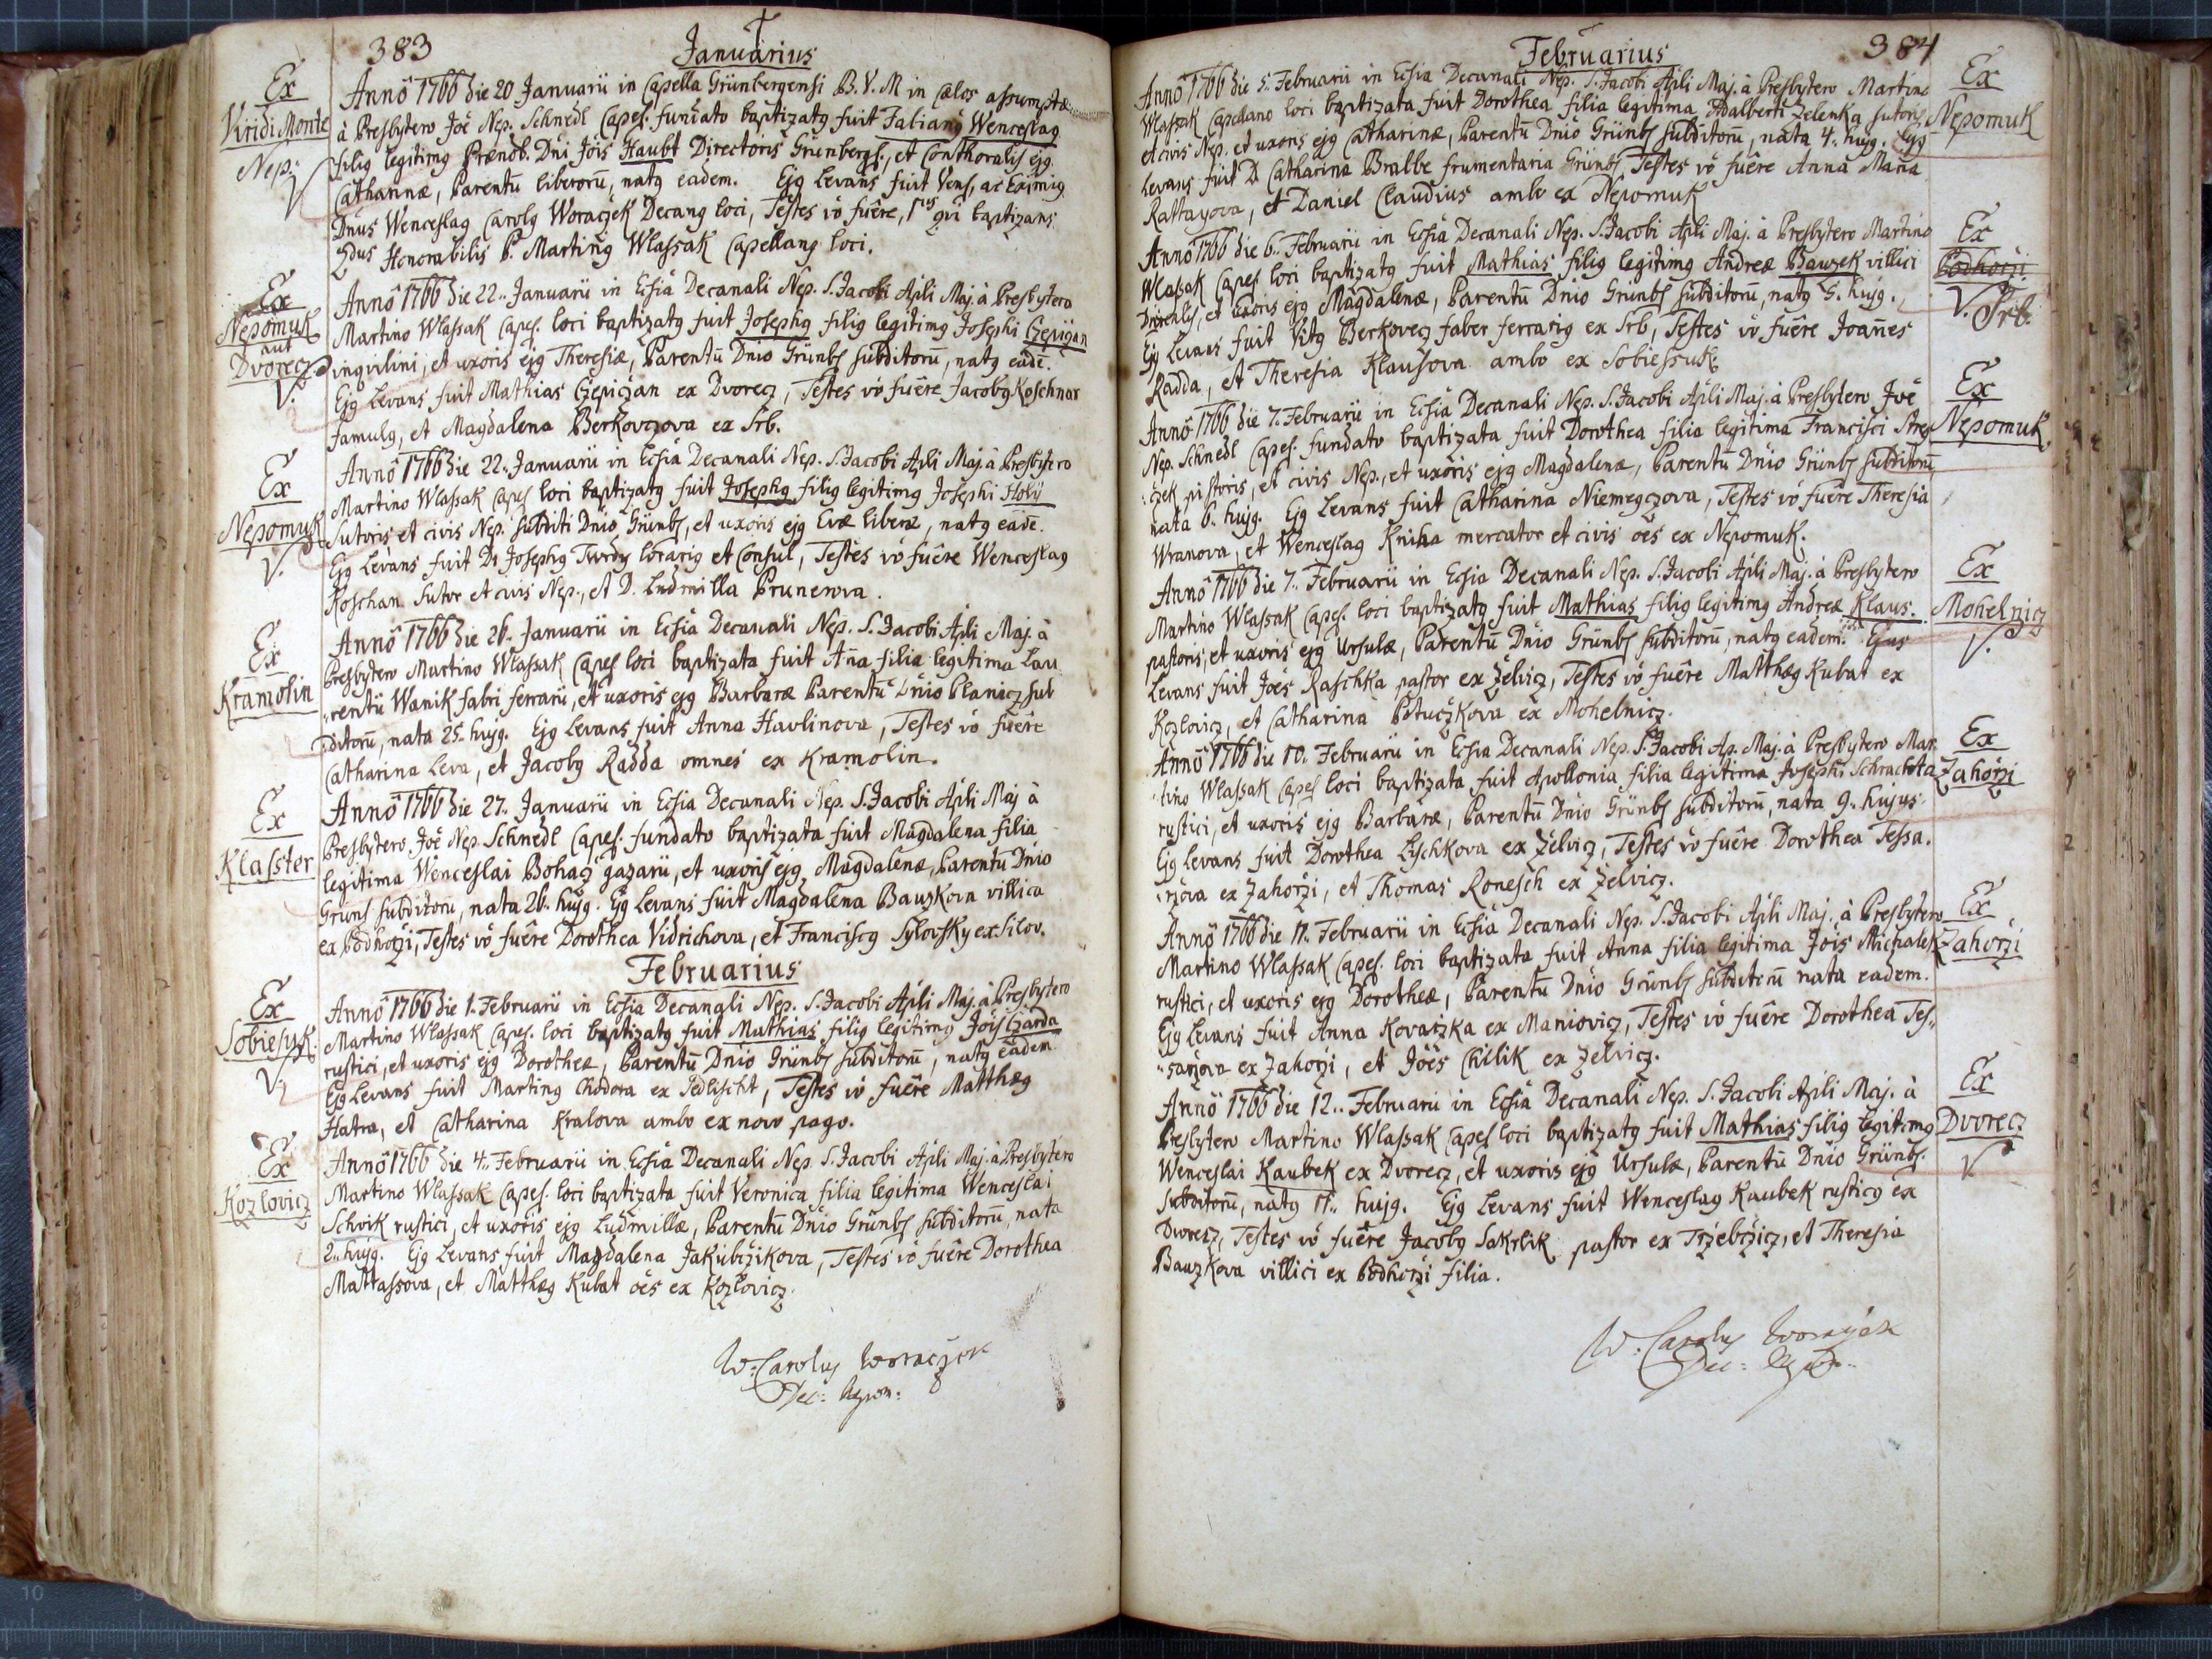 383
Januarius
Ex
Viridi Monte
Nep.
V
Anno 1766 die 20 Januarii in Capella Grünbergensi B. V. M in Cælos assumptæ
à Presbytero Joe Nep. Schnedl Capel. fundato baptizatg fuit Fabiang Wenceslag
filig legitimg Prænob. Dni Jois Haubt Directoris Grünbergs., et Conthoralis ejg
Catharinæ, Parentū liberorū, natg eadem. Ejg Levans fuit Vens, ac Eximig
Dnus Wenceslag Carolg Woraczek Decang loci, Testes vò fuêre, 1mus qui baptizans
2dus Honorabilis P. Marting Wlassak Capellang loci.
Ex
Nepomuk
aut
Dvorecz
V.
Anno 1766 die 22.. Januarii in Ecsia Decanali Nep. S. Jacobi Apli Maj. à Presbytero
Martino Wlassak Capel. loci baptizatg fuit Josephg filig legitimg Josephi Czepiçan
inqvilini, et uxoris ejg Theresiæ, Parentū Dnio Grünbs subditorū, natg eadē.
Ejg Levans fuit Mathias Czepiçan ex Dvorecz, Testes vò fuêre Jacobg Koschnar
famulg, et Magdalena Berkovczova ex Srb.
Ex
Nepomuk
V.
Anno 1766 die 22.. Januarii in Ecsia Decanali Nep. S. Jacobi Apli Maj à Presbytero
Martino Wlassak Capel loci baptizatg fuit Josephg filig legitimg Josephi Holÿ
Sutoris et civis Nep. subditi Dnio Grünbs, et uxoris ejg Evæ liberæ, natg eadē.
Ejg Levans fuit D. Josephg Twrdy lorarig et Consul, Testes vò fuêre Wenceslag
Koschan Sutor et civis Nep., et D. Ludmilla Prunerova.
Ex
Kramolin
Anno 1766 die 26.. Januarii in Ecsia Decanali Nep. S. Jacobi Apli Maj. à
Presbytero Martino Wlassak Capel loci baptizata fuit Aña filia legitima Lau
„rentii Wanik fabri ferrarii, et uxoris ejg Barbaræ Parentū Dnio Planicz sub
„ditorū, nata 25.. hujg. Ejg Levans fuit Anna Havlinova, Testes vò fuêre
Catharina Leva, et Jacobg Radda omnes ex Kramolin.
Ex
Klasster
Anno 1766 die 27.. Januarii in Ecsia Decanali Nep. S. Jacobi Apli Maj à
Presbytero Joe Nep. Schnedl Capel. fundato baptizata fuit Magdalena filia
legitima Wenceslai Bohacz gazarii, et uxoris ejg Magdalenæ, Parentū Dnio
Grüns subditorū, nata 26. hujg. Ejg Levans fuit Magdalena Bauzkova villica
ex Podhorzi, Testes vò fuêre Dorothea Vidrichova, et Franciscg Sylovsky ex Silov.
Februarius
Ex
Sobiesuk
V.
Anno 1766 die 1. Februarii in Ecsia Decanali Nep. S. Jacobi Apli Maj. à Presbytero
Martino Wlassak Capel. loci baptizatg fuit Mathias filig legitimg Jois Czarda
rustici, et uxoris ejg Dorotheæ, Parentū Dnio Grünbs subditorū, natg eadem.
Ejg Levans fuit Marting Chodora ex Sedlischt, Testes vò fuêre Matthæg
Hatra, et Catharina Kralova ambo ex novo pago.
Ex
Kozlovicz
Anno 1766 die 4.. Februarii in Ecsia Decanali Nep. S. Jacobi Apli Maj. à Presbytero
Martino Wlassak Capel. loci baptizata fuit Veronica filia legitima Wenceslai
Schvik rustici, et uxoris ejg Ludmillæ, Parentū Dnio Grünbs subditorū, nata
2.. hujg. Ejg Levans fuit Magdalena Jakubczikova, Testes vò fuêre Dorothea
Mattassova, et Matthæg Kubat oēs ex Kozlovicz.
W: Carolus Woraczek
Dec: Nepom:
384
Februarius
Ex
Nepomuk
Anno 1766 die 5. Februarii in Ecsia Decanali Nep. S. Jacobi Apli Maj. à Presbytero Martino
Wlassak Capellano loci baptizata fuit Dorothea filia legitima Adalberti Zelenka sutoris
et civis Nep. et uxoris ejg Catharinæ, Parentū Dnio Grünbs subditorū, nata 4. hujg. Ejg
Levans fuit D. Catharina Bralbe frumentaria Grünbs, Testes vò fuêre Anna Maria
Rattayova, et Daniel Claudius ambo ex Nepomuk
Ex
Podhorzi
V. Srb.
Anno 1766 die 6. Februarii in Ecsia Decanali Nep. S. Jacobi Apli Maj. à Presbytero Martino
Wlassak Capel loci baptizatg fuit Mathias filig legitimg Andreæ Bauzek villici
et uxoris ejg Magdalenæ, Parentū Dnio Grünbs subditorū, natg 5. hujg.
Ejg Levans fuit Vitg Berkovecz faber ferrarig ex Srb, Testes vò fuêre Joañes
Radda, et Theresia Klausova ambo ex Sobiessuk.
Ex
Nepomuk
Anno 1766 die 7. Februarii in Ecsia Decanali Nep. S. Jacobi Apli Maj. à Presbytero Joe
Nep. Schnedl Capel. fundato baptizata fuit Dorothea filia legitima Francisci Strey
„czek pistoris, et civis Nep., et uxoris ejg Magdalenæ, Parentū Dnio Grünbs subditorū,
nata 6. hujg. Ejg Levans fuit Catharina Niemegczova, Testes vò fuêre Theresia
Wranova, et Wenceslag Kniha mercator et civis oēs ex Nepomuk.
Ex
Mohelnicz
V.
Anno 1766 die 7. Februarii in Ecsia Decanali Nep. S. Jacobi Apli Maj. à Presbytero
Martino Wlassak Capel. loci baptizatg fuit Mathias filig legitimg Andreæ Klaus.
pastoris, et uxoris ejg Ursulæ, Parentū Dnio Grünbs subditorū, natg eadem. Ejus
Levans fuit Joes Raschka pastor ex Želvicz, Testes vò fuêre Matthæg Kubat ex
Kozlovicz, et Catharina Ptuczkova ex Mohelnicz.
Ex
Zahorzi
Anno 1766 die 10. Februarii in Ecsia Decanali Nep. S. Jacobi Ap. Maj. à Presbytero Mar
„tino Wlassak Capel loci baptizata fuit Apollonia filia legitima Josephi Schrachota
rustici, et uxoris ejg Barbaræ, Parentū Dnio Grünbs subditorū, nata 9. hujus
Ejg Levans fuit Dorothea Lischkova ex Želvicz, Testes vò fuêre Dorothea Tessa.
„rzova ex Zahorzi, et Thomas Ronesch ex Želvicz.
Ex
Zahorzi
Anno 1766 die 11. Februarii in Ecsia Decanali Nep. S. Jacobi Apli Maj. à Presbytero
Martino Wlassak Capel. loci baptizata fuit Anna filia legitima Jois Michalek
rustici, et uxoris ejg Dorotheæ, Parentū Dnio Grünbs subditorū nata eadem.
Ejg Levans fuit Anna Kovarzka ex Maniovicz, Testes vò fuêre Dorothea Tes„
„sarzova ex Zahorzi, et Joes Chilik ex Želvicz.
Ex
Dvorecz
V
Anno 1766 die 12.. Februarii in Ecsia Decanali Nep. S. Jacobi Apli Maj. à
Presbytero Martino Wlassak Capel loci baptizatg fuit Mathias filig legitimg
Wenceslai Kaubek ex Dvorecz, et uxoris ejg Ursulæ, Parentū Dnio Grünbs.
subditorū, natg 11.. hujg. Ejg Levans fuit Wenceslag Kaubek rusticg ex
Dvorecz, Testes vò fuêre Jacobg Sakrlik pastor ex Trzebczicz, et Theresia
Bauzkova villici ex Podhorzi filia.
W: Carolus Woraczek